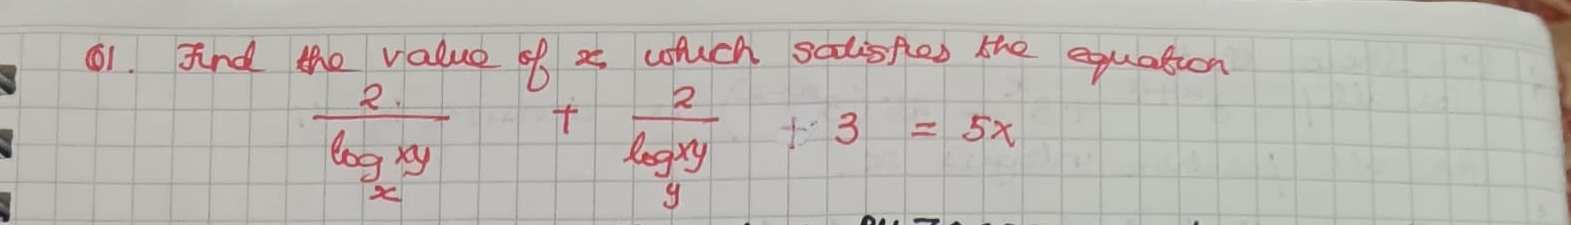 Q1. Find the value of x which satisfies the equation
2/(log_x xy) + 2/(log_y xy) + 3 = 5x